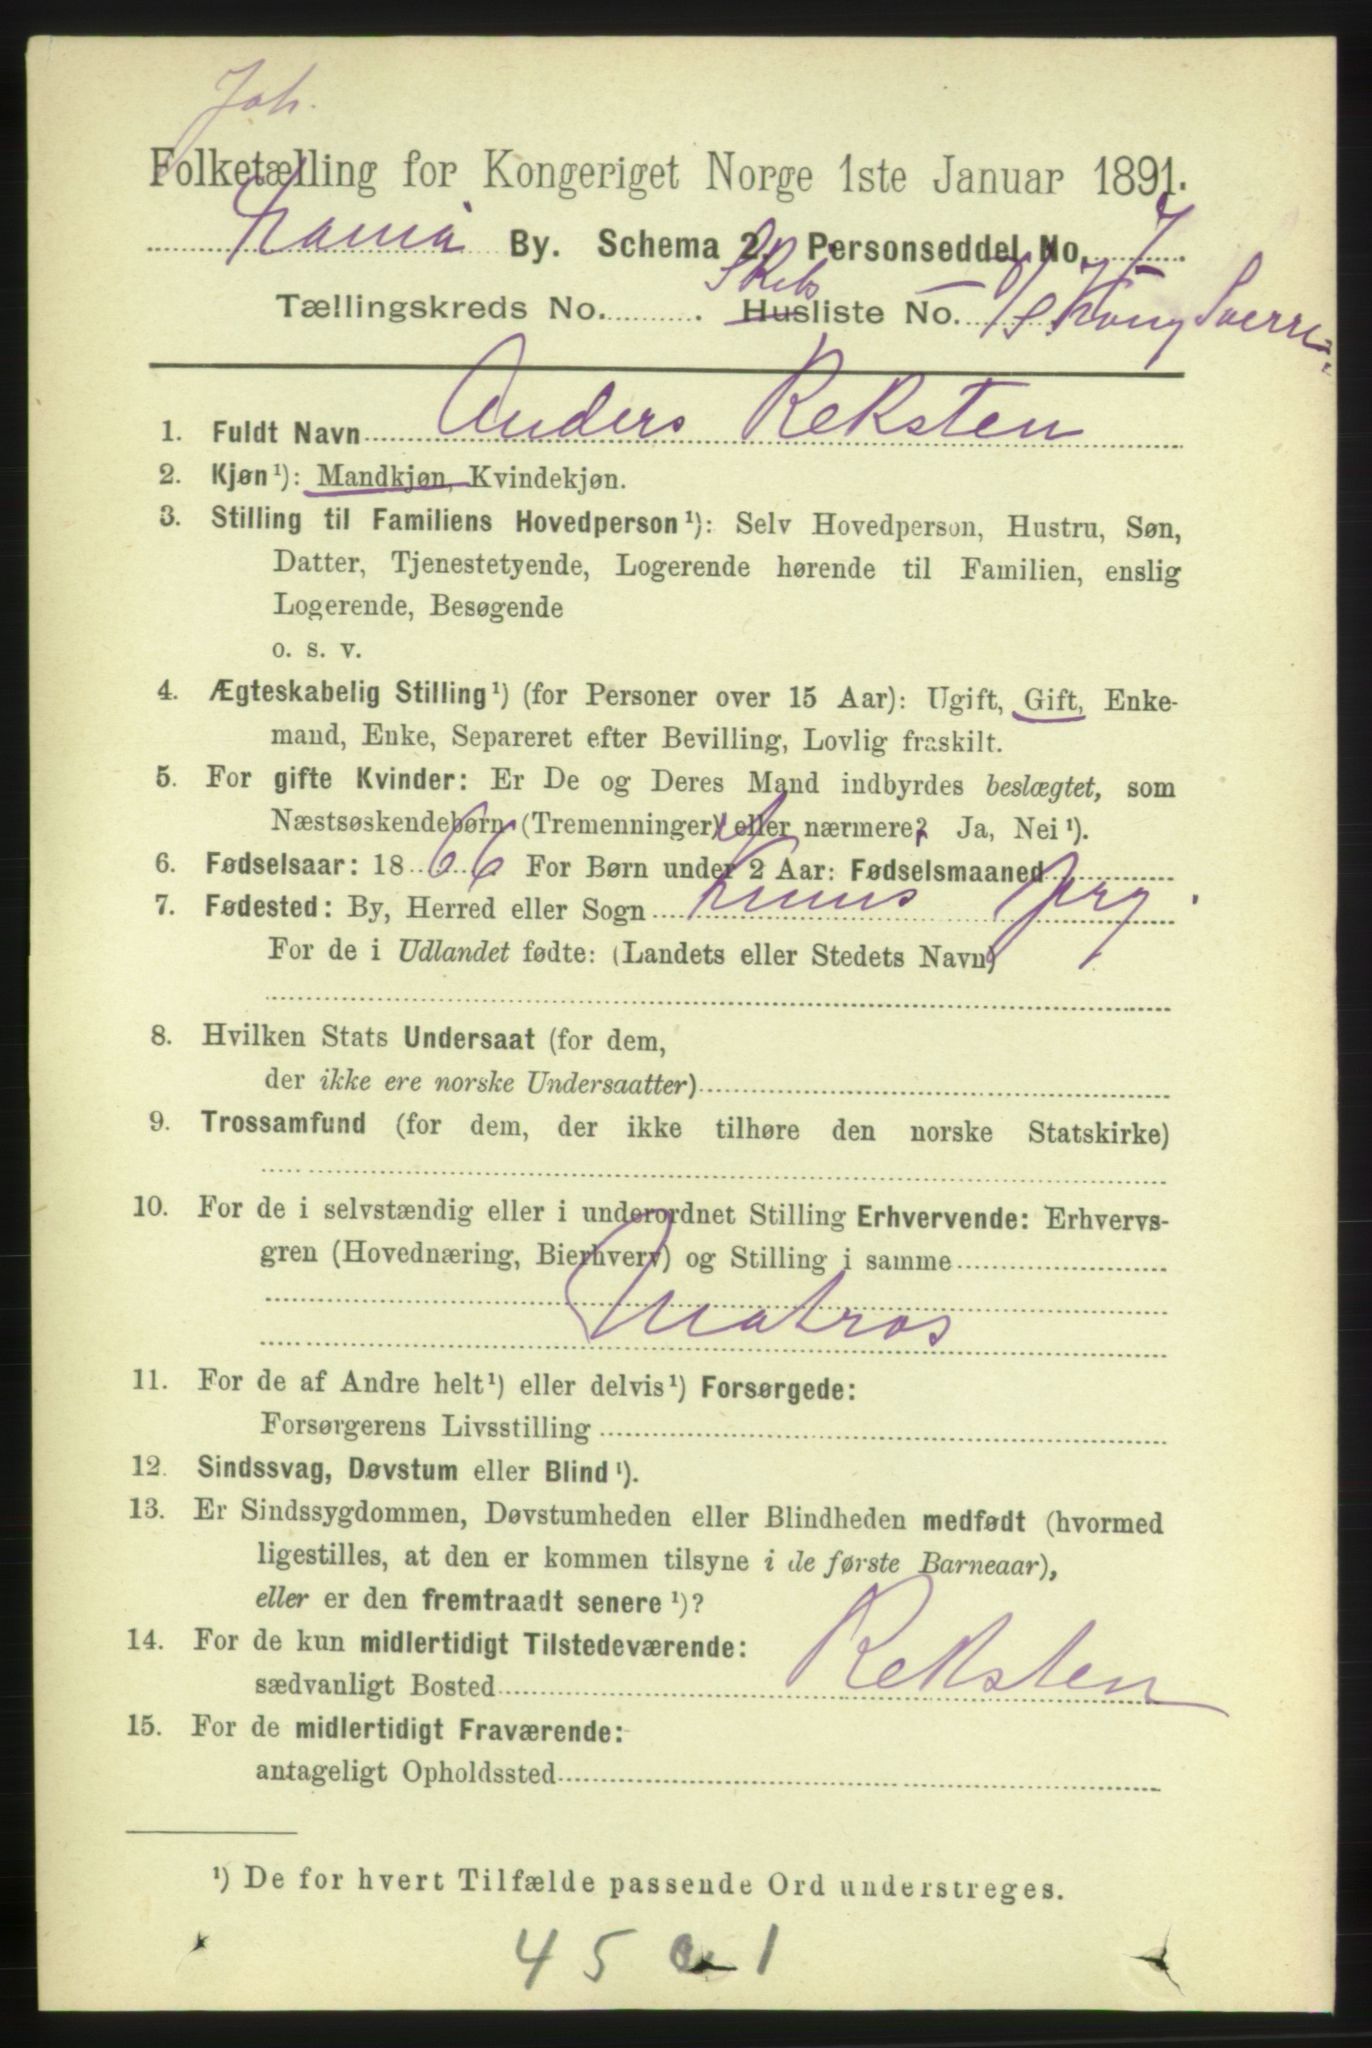 Joh.
Folketælling for Kongeriget Norge 1ste Januar 1891.
By. Schema 2. Personseddel No. 7.
Tællingskreds No. . Skibs Husliste No. D/S Kong Sverre.
1. Fuldt Navn Anders Reksten
2. Kjøn¹): Mandkjøn, Kvindekjøn.
3. Stilling til Familiens Hovedperson¹): Selv Hovedperson, Hustru, Søn,
Datter, Tjenestetyende, Logerende hørende til Familien, enslig
Logerende, Besøgende
o. s. v.
4. Ægteskabelig Stilling¹) (for Personer over 15 Aar): Ugift, Gift, Enke-
mand, Enke, Separeret efter Bevilling, Lovlig fraskilt.
5. For gifte Kvinder: Er De og Deres Mand indbyrdes beslægtet, som
Næstsøskendebørn (Tremenninger) eller nærmere? Ja, Nei¹).
6. Fødselsaar: 1866 For Børn under 2 Aar: Fødselsmaaned
7. Fødested: By, Herred eller Sogn Kinns Prg.
For de i Udlandet fødte: (Landets eller Stedets Navn)
8. Hvilken Stats Undersaat (for dem,
der ikke ere norske Undersaatter)
9. Trossamfund (for dem, der ikke tilhøre den norske Statskirke)
10. For de i selvstændig eller i underordnet Stilling Erhvervende: Erhvervs-
gren (Hovednæring, Bierhverv) og Stilling i samme
Matros
11. For de af Andre helt¹) eller delvis¹) Forsørgede:
Forsørgerens Livsstilling
12. Sindssvag, Døvstum eller Blind¹).
13. Er Sindssygdommen, Døvstumheden eller Blindheden medfødt (hvormed
ligestilles, at den er kommen tilsyne i de første Barneaar),
eller er den fremtraadt senere¹)?
14. For de kun midlertidigt Tilstedeværende:
sædvanligt Bosted Reksten
15. For de midlertidigt Fraværende:
antageligt Opholdssted
¹) De for hvert Tilfælde passende Ord understreges.
4501